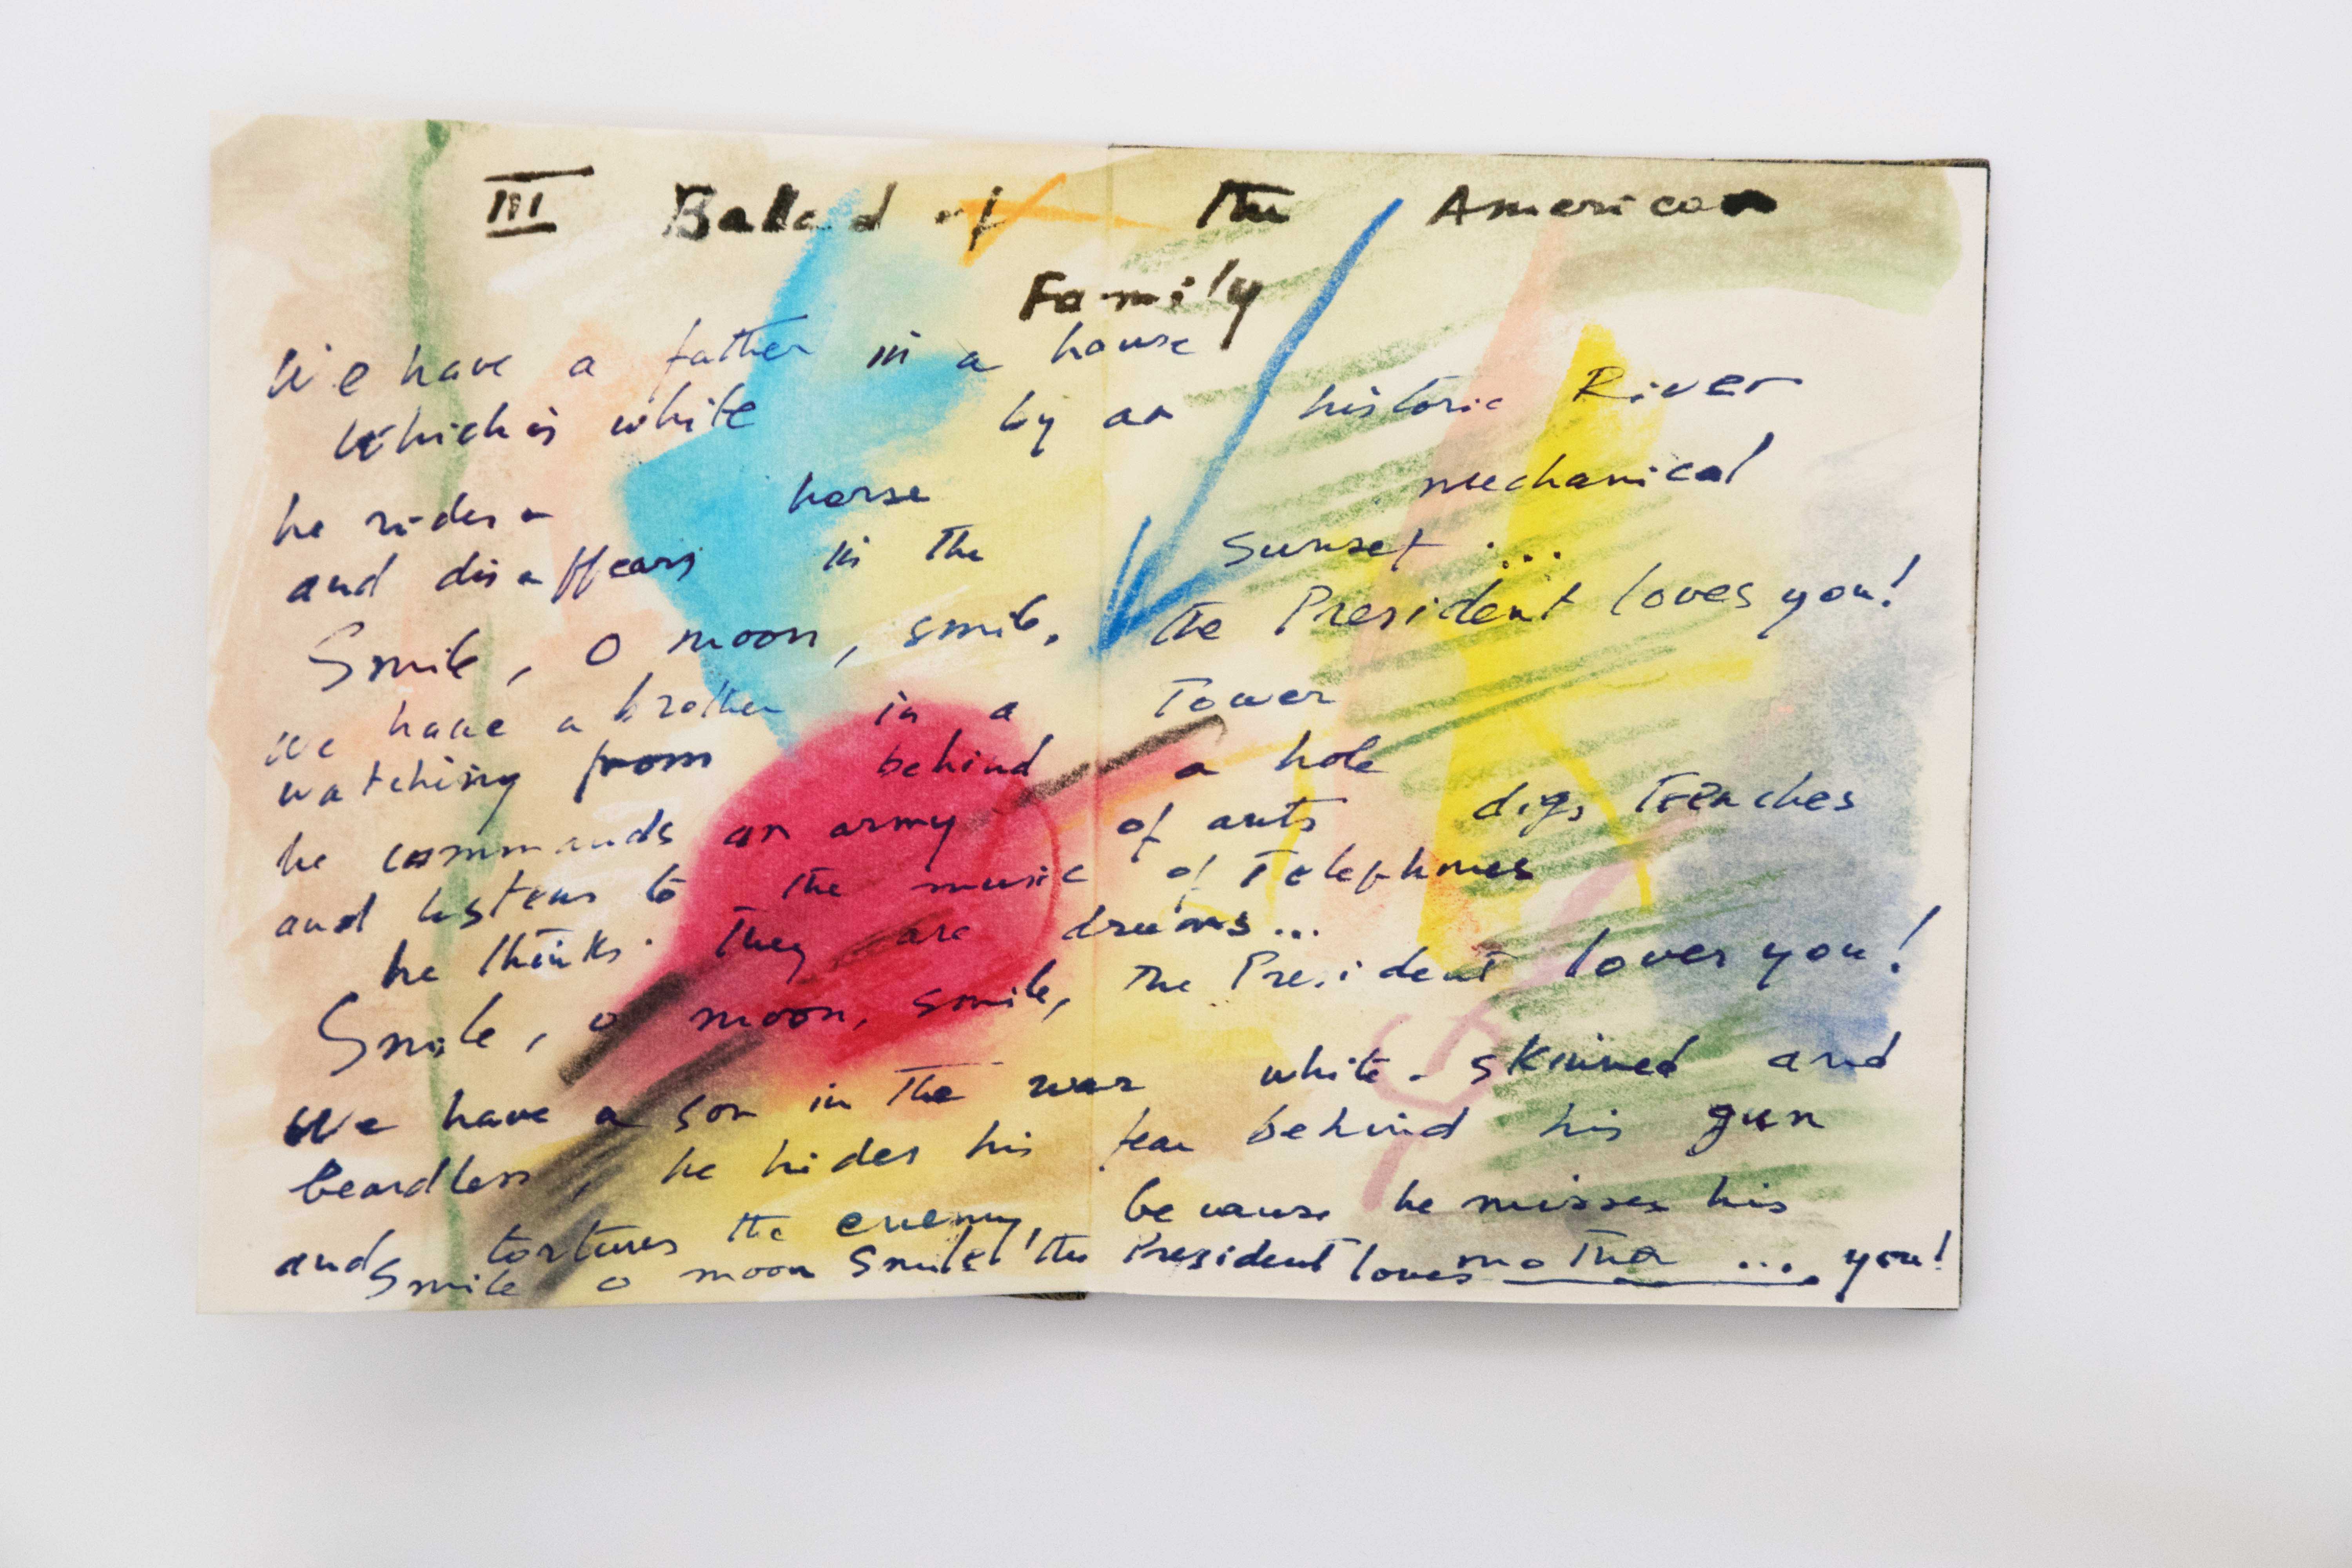 III Ballad of the American
Family
We have a father in a house
which is white by an historic River
he rides a horse mechanical
and disappears in the sunset ...
Smile, O moon, smile, the President loves you!
we have a brother in a Tower
watching from behind a hole
he commands an army of ants digs Trenches
and listens to the music of Telephones
he thinks they are dreams...
Smile, o moon, smile, the President loves you!
We have a son in the war white-skinned and
beardless, he hides his fear behind his gun
and tortures the enemy because he misses his
mother ...
Smile o moon smile! the President loves you!